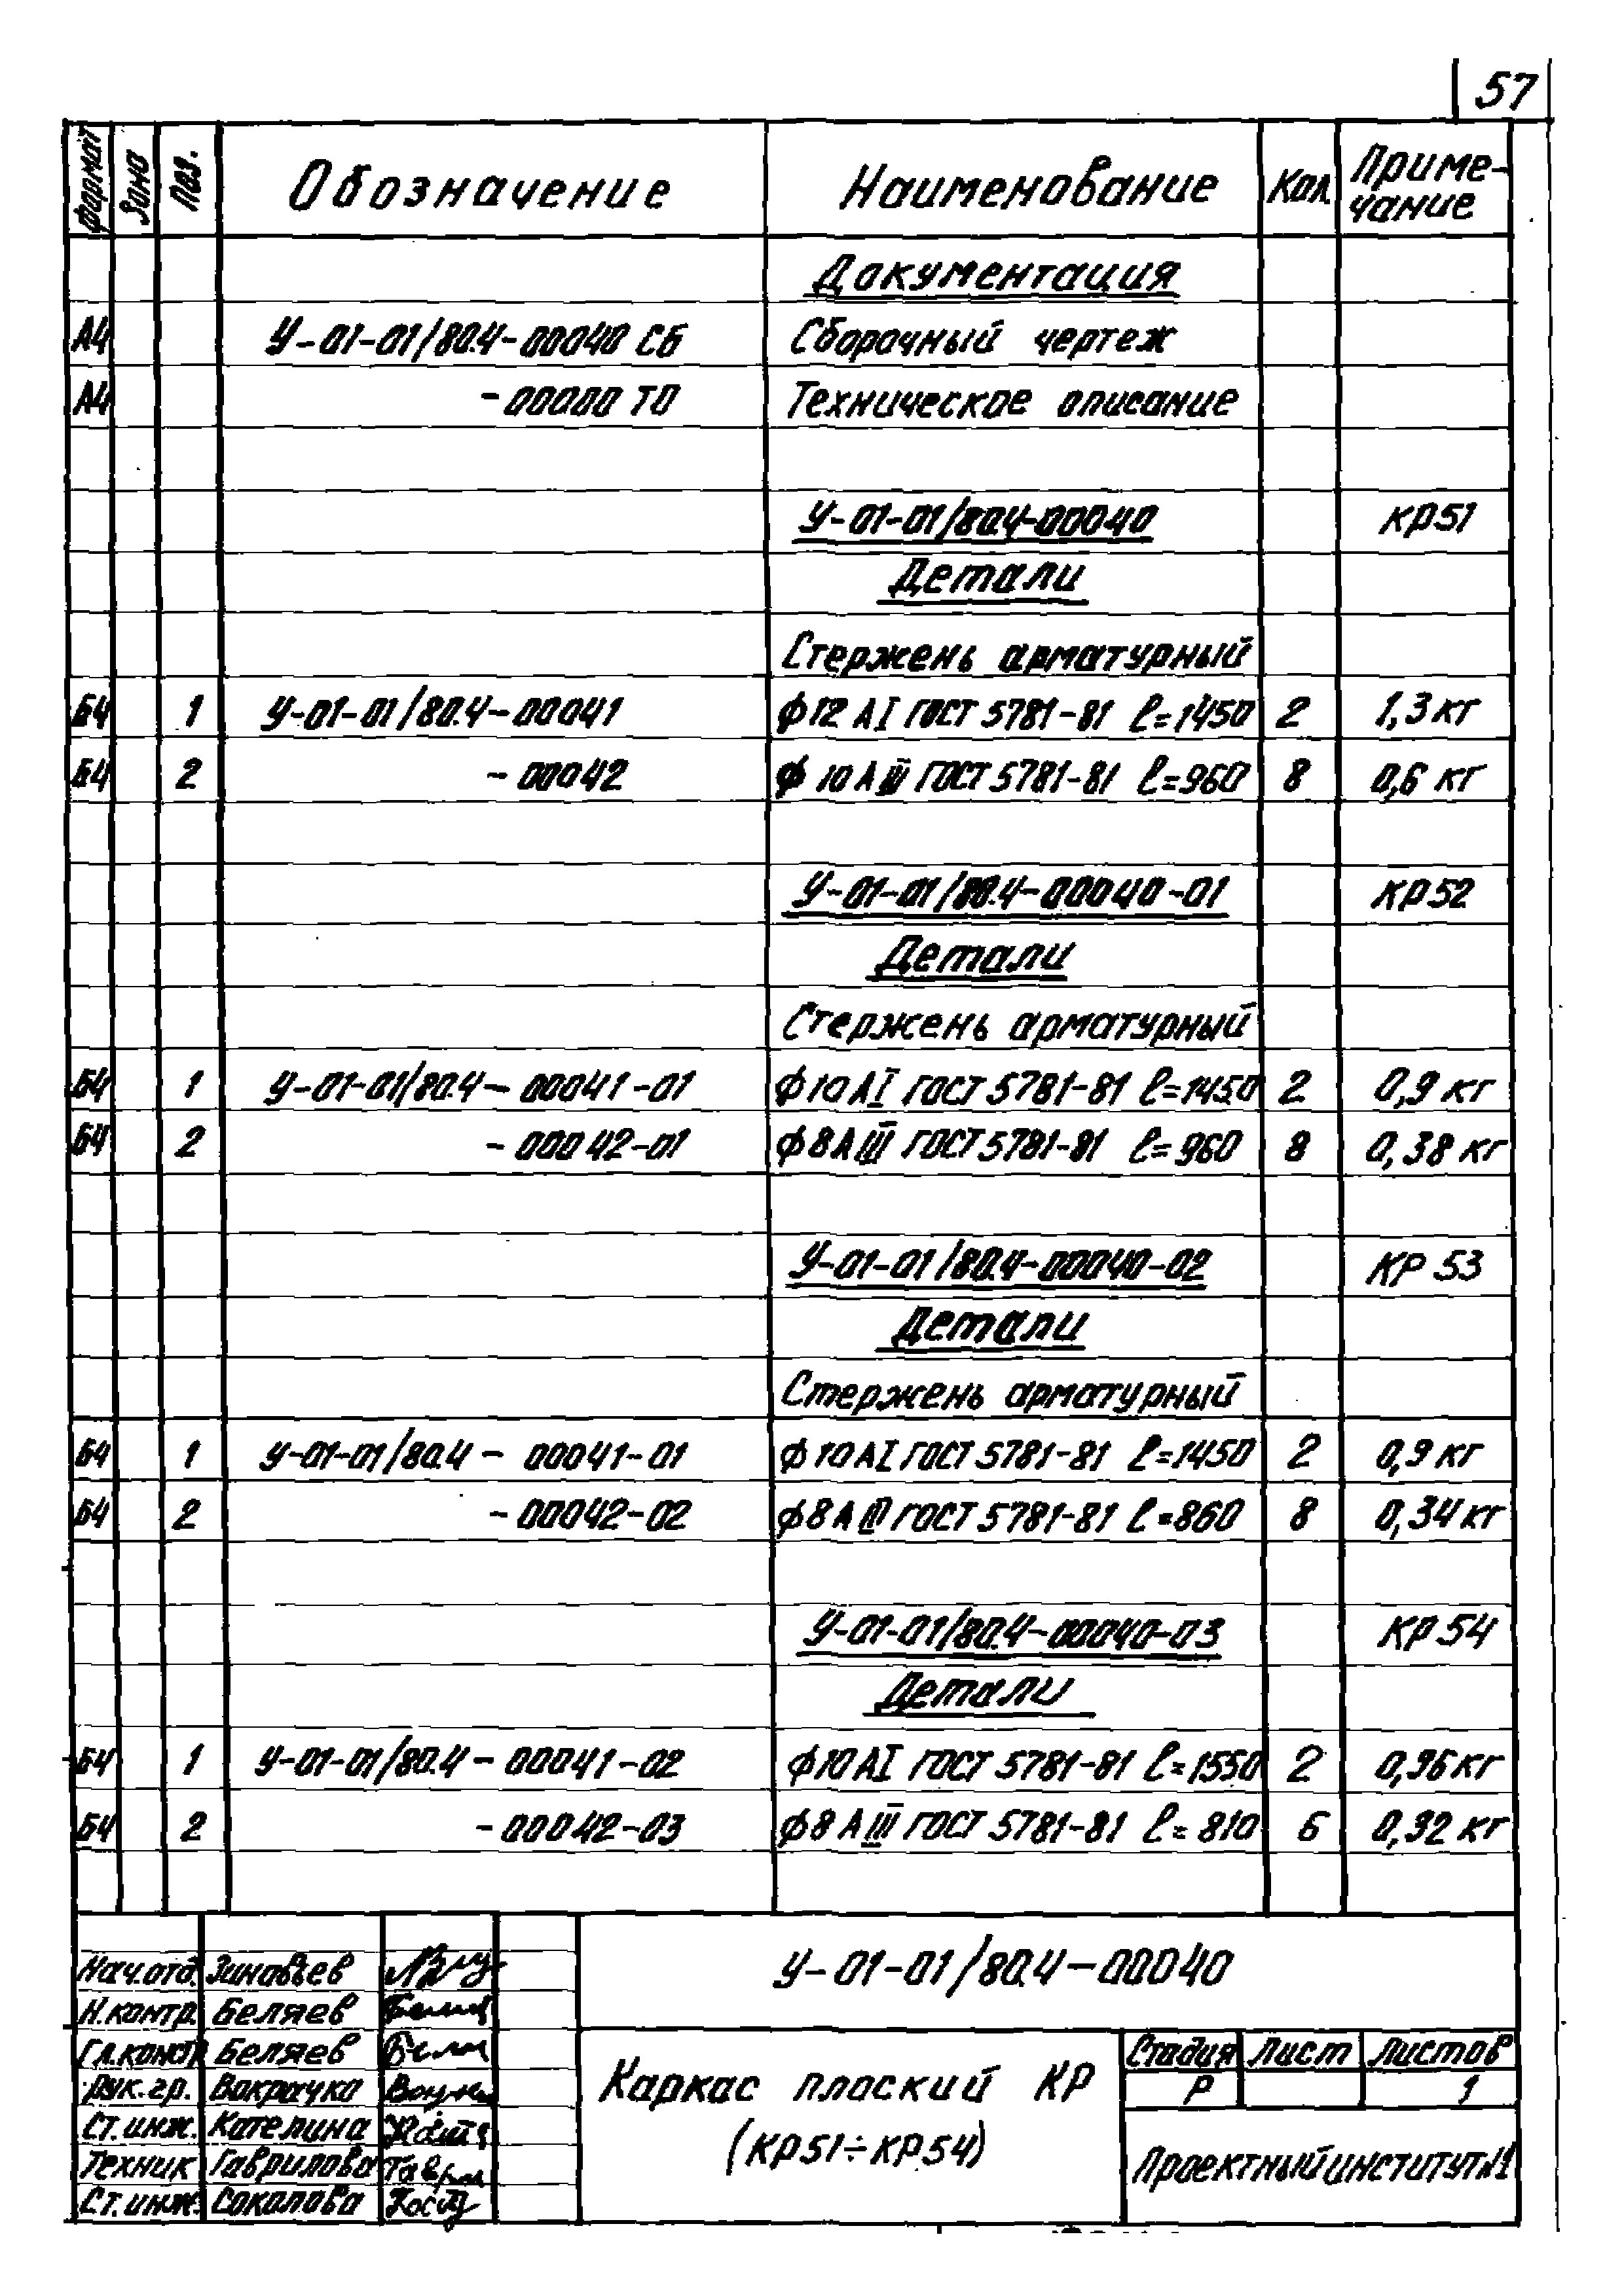 57
Формат Зона Поз. Обозначение Наименование Кол. Приме-
чание
Документация
А4 У-01-01/80.4-00040 СБ Сборочный чертеж
А4 -00000 ТО Техническое описание
У-01-01/80.4-00040 КР51
Детали
Стержень арматурный
Б4 1 У-01-01/80.4-00041 ф12 АI ГОСТ 5781-81 ℓ=1450 2 1,3 кг
Б4 2 -00042 ф 10 АIII ГОСТ 5781-81 ℓ=960 8 0,6 кг
У-01-01/80.4-00040-01 КР52
Детали
Стержень арматурный
Б4 1 У-01-01/80.4-00041-01 ф10 АI ГОСТ 5781-81 ℓ=1450 2 0,9 кг
Б4 2 -00042-01 ф8 АIII ГОСТ 5781-81 ℓ=960 8 0,38 кг
У-01-01/80.4-00040-02 КР 53
Детали
Стержень арматурный
Б4 1 У-01-01/80.4-00041-01 ф10 АI ГОСТ 5781-81 ℓ=1450 2 0,9 кг
Б4 2 -00042-02 ф8 АIII ГОСТ 5781-81 ℓ=860 8 0,34 кг
У-01-01/80.4-00040-03 КР 54
Детали
Б4 1 У-01-01/80.4-00041-02 ф10 АI ГОСТ 5781-81 ℓ=1550 2 0,96 кг
Б4 2 -00042-03 ф8 АIII ГОСТ 5781-81 ℓ=810 6 0,32 кг
У-01-01/80.4-00040
Нач.отд. Зиновьев
Н.контр. Беляев
Гл.констр Беляев
Рук.гр. Вокрачко
Ст.инж. Кателина
Техник Гаврилова
Ст.инж. Соколова
Каркас плоский КР
(КР51÷КР54)
Стадия Лист Листов
Р 1
Проектный институт №1